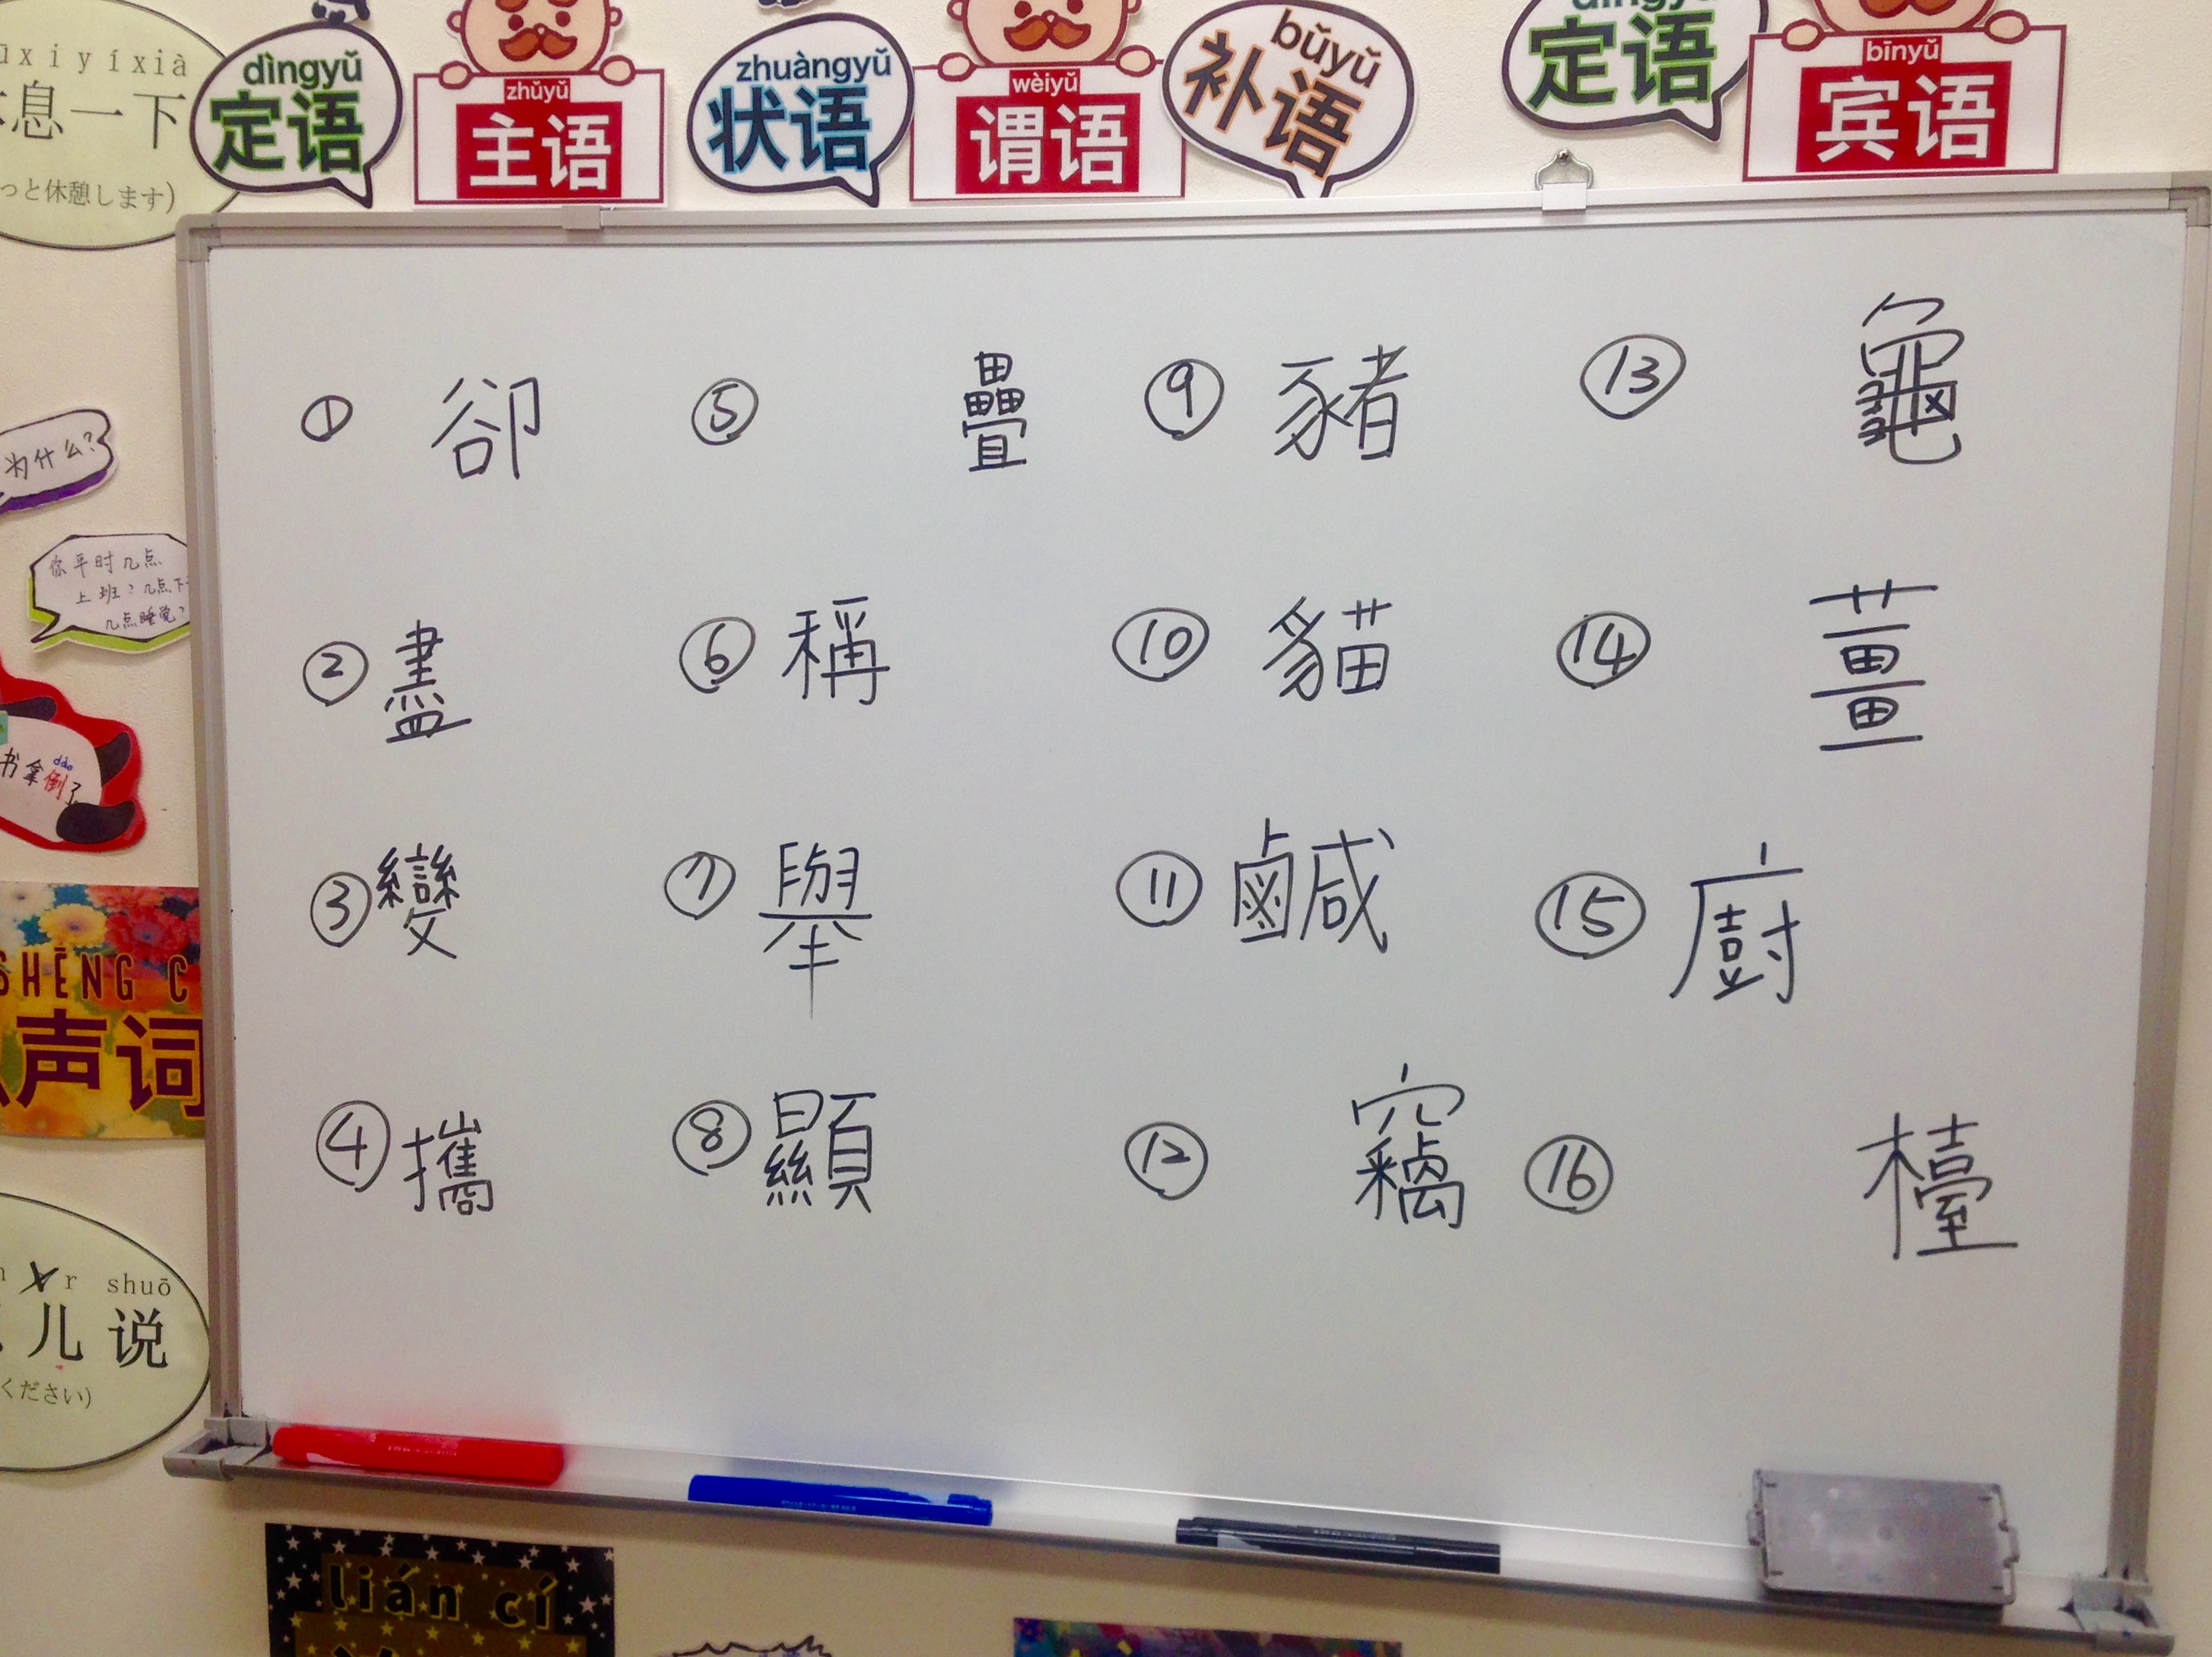 ūxiyíxià
息一下
っと休憩します)
dìngyǔ
定语
zhǔyǔ
主语
zhuàngyǔ
状语
wèiyǔ
谓语
bǔyǔ
补语
dìngyǔ
定语
bīnyǔ
宾语
为什么?
你平时几点
上班?几点下
几点睡觉?
dào
书拿倒了
SHĒNG C
声词
r shuō
儿说
ください)
① 卻
⑤ 疊
⑨ 豬
⑬ 龜
② 盡
⑥ 稱
⑩ 貓
⑭ 薑
③ 變
⑦ 舉
⑪ 鹹
⑮ 廚
④ 攜
⑧ 顯
⑫ 竊
⑯ 檯
lián cí